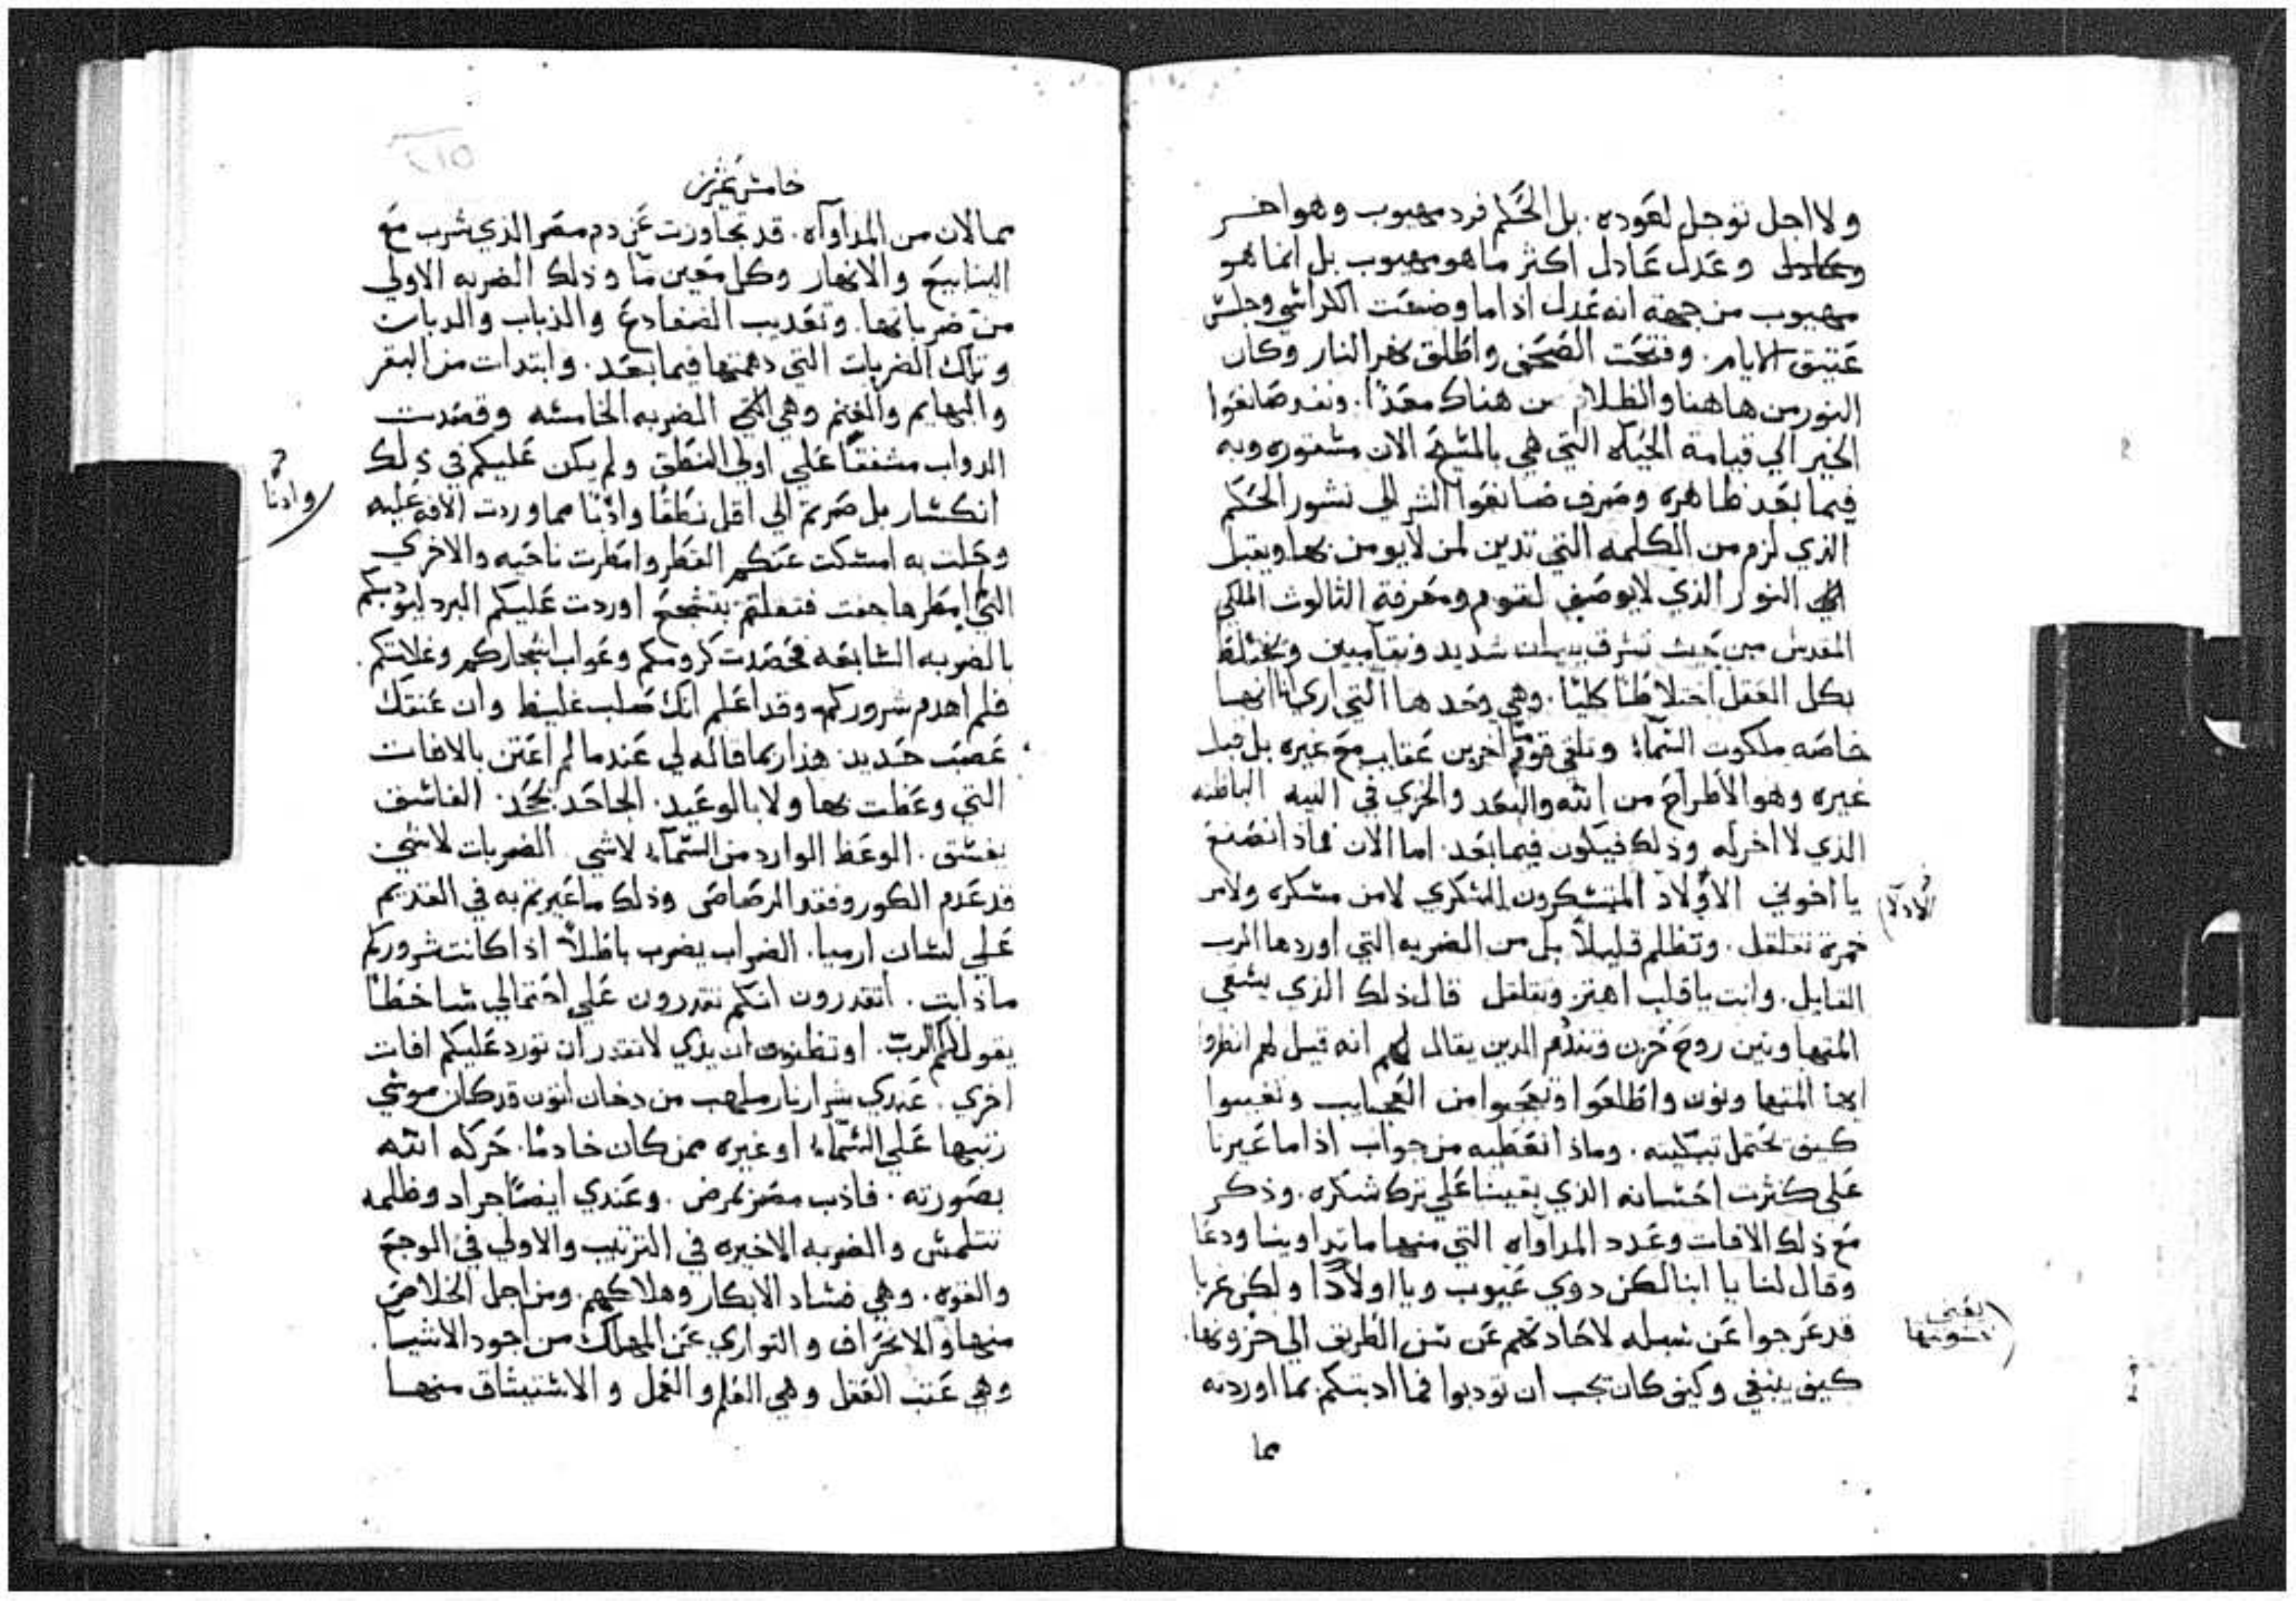 ولا اجل توجل لعوده. بل الحكم فرد مهبوب وهو اخر
وعدل عادل اكثر ما هو مهبوب بل انما هو
مهبوب من جهة انه عدل اذا ما وضعت الكراسي وجلس
عتيق الايام. وفتحت الصحف واطلق نهر النار وكان
النور من هاهنا والظلام من هناك معدًا. ونفد صانعوا
الخير الي قيامة الحياه التي هي بالمسيح الان مستوره وبه
فيما بعد ظاهره وصرف صانعوا الشر الي نشور الحكم
الذي لزم من الكلمه التي تدين لمن لا يومن بها ويقبل
النور الذي لا يوصف لقوم ومعرفة الثالوث الملكي
المقدس حيث تشرف ببيان شديد ونقا مبين وتختلط
بكل العقل اختلاطًا كليًا. وهي وحدها التي اري انا انها
خاصه ملكوت السماء وتلقي قومًا اخرين عقاب مع غيره بل قبل
غيره وهو الاطراح من الله والبعد والخزي في النيه الباطنه
الذي لا اخر له وذلك فيكون فيما بعد. اما الان فماذا نصنع
يا اخوتي الاولاد المنسكرون السكري لا من مسكره ولا من
خمرة تقلقل. وتظلم قليلاً بل من الضربه التي اوردها الرب
القايل. وانت يا قلب اهتز وتقلقل قال ذلك الذي يسقي
المتهاونين روح حزن وتندم الدين يقال لهم انه قيل لهم انظروا
ايها المتهاونون واطلعوا وتعجبوا من العجايب وتغيبوا
كيف نحتمل تبكيته. وماذا نعطيه من جواب اذا ما عيرنا
علي كثرت احسانه الذي بقينا علي ترك شكره. وذكر
مع ذلك الافات وعدد المداواه التي منها ما تداوينا ودعا
وقال لنا يا ابنا لكن دوي عيوب ويا اولادًا ولكن غربا
قد عرجوا عن سبله لاحادتهم عن سنن الطريق الي حزونها.
كيف ينبغي وكيف كان يجب ان تودبوا فما ادبتكم بما اوردته
مما
الادلا
يعني
خامس عشرين
مما الان من المداواه. قد تجاورت عن دم مصر الذي شرب مع
الينابيع والانهار وكل معين ما وذلك الضربه الاولي
من ضرباتها. وتعديب الضفادع والذباب والدبان
وتلك الضربات التي دهمتها فيما بعد. وابتدات من البقر
والبهايم والغنم وهي الضربه الخامسه وقصدت
الدواب مشفقًا علي اولي النطق ولم يكن عليكم في ذلك
انكسار بل صرتم الي اقل نطقًا وادبًا مما وردت الافه عليه
وحلت به امسكت عنكم القطر وامطرت ناحيه والاخري
التي لم امطرها جفت فقلتم نتشجع اوردت عليكم البرد ليودبكم
بالضربه السابقه فحصدت كرومكم وغواب اشجاركم وغلاتكم.
فلم اهدم شروركم. وقد اعلم انك صلب غليظ وان عنقك
عصب حديد هذا ربما قاله لي عندما لم اعتن بالافات
التي وعظت بها ولا بالوعيد. الجاحد يجحد. الفاسق
يفسق. الوعظ الوارد من السماء لاشي الضربات لاشي
قد عدم الكور وفقد الرصاص وذلك ما عيرتم به في القديم
علي لسان ارميا. الضراب يضرب باطلاً اذا كانت شروركم
ما ذابت. اتقدرون انكم تقدرون علي احتمالي ساخطًا
يقول لكم الرب. او تظنون ان يدي لا تقدر ان تورد عليكم افات
اخري. عندي شرار نار ملهب من دخان اتون قد كان موسي
رتبها علي السماء او غيره ممن كان خادمًا. حركه الله
بصورته. فاذب مصر بمرض. وعندي ايضًا جراد وظلمه
تتلمس والضربه الاخيره في الترتيب والاولي في الوجع
والقوه. وهي فساد الابكار وهلاكهم. ومن اجل الخلاص
منها والانحراف والتواري عن المهلك من اجود الاشيا.
وهي عتب العقل وهي العلم والعمل والاستيثاق منها
وادبًا